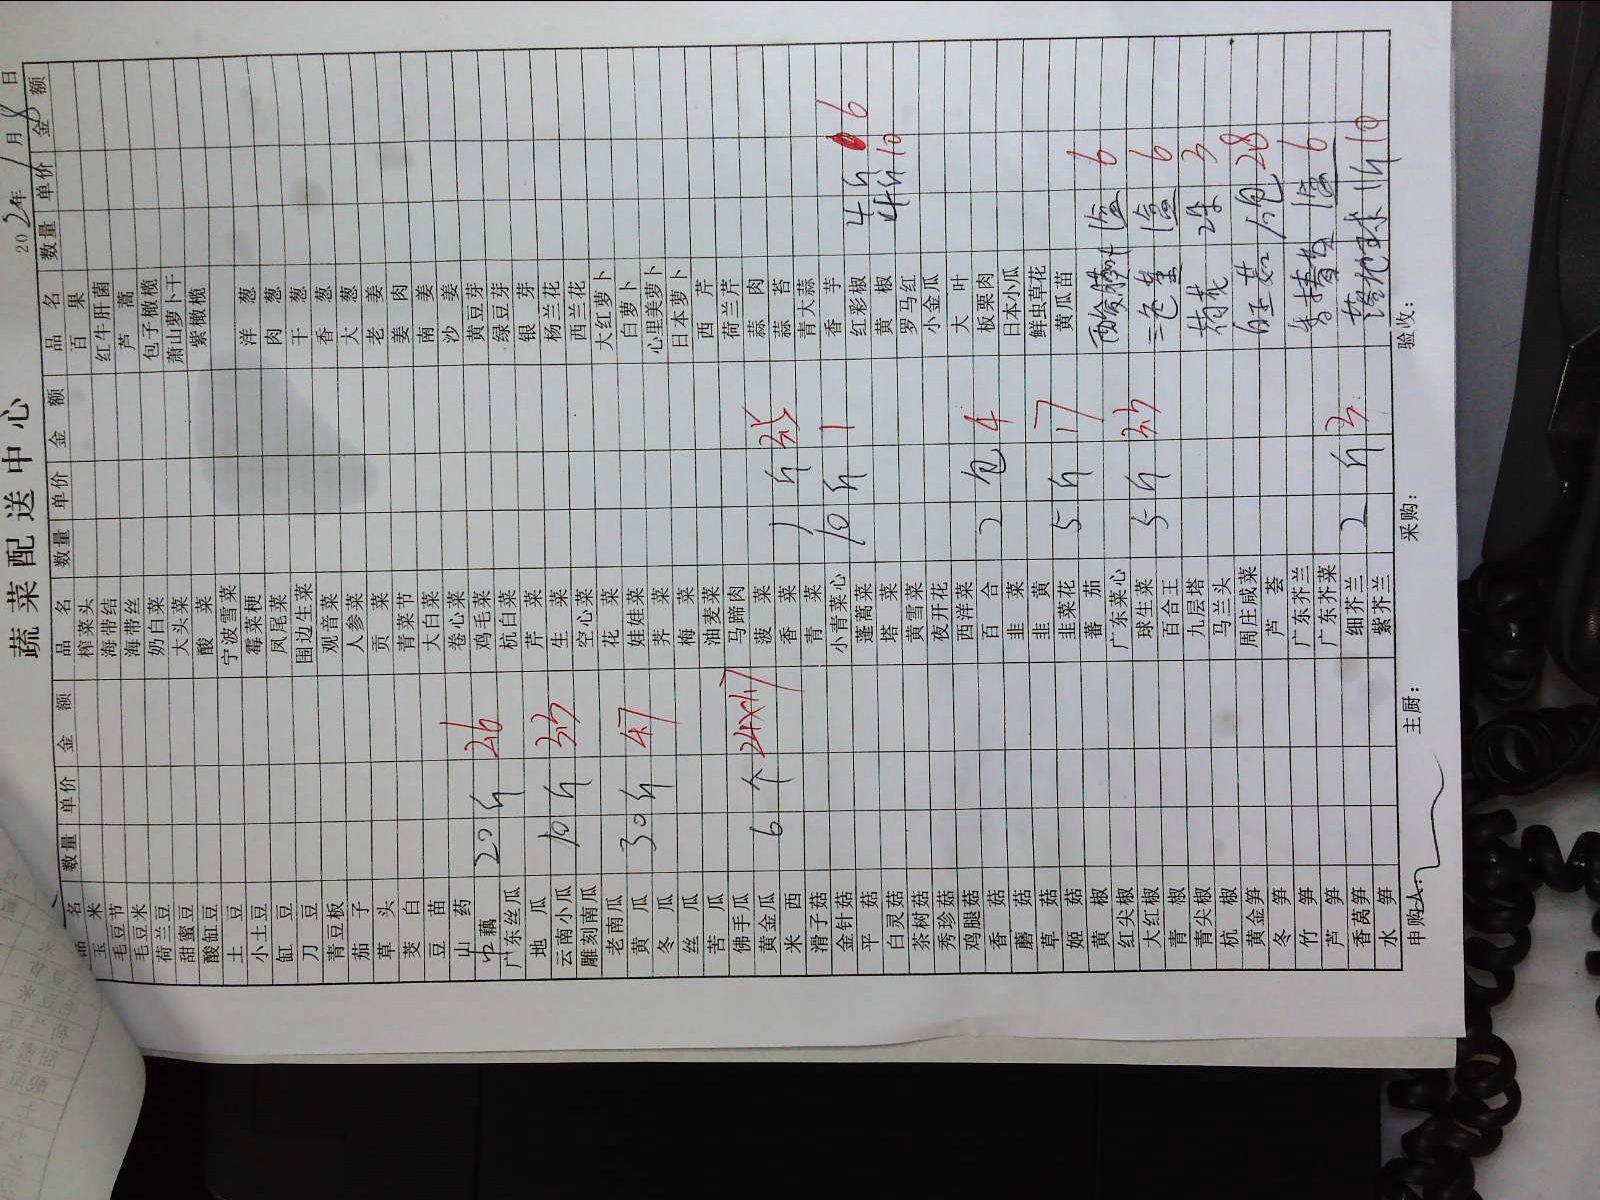 蔬菜配送中心
202 年 1 月 8 日
品名 数量 单价 金额 品名 数量 单价 金额 品名 数量 单价 金额
玉米 榨菜头 百果
毛豆节 海带结 红牛肝菌
毛豆米 海带丝 芦蒿
荷兰豆 奶白菜 包子橄榄
甜蜜豆 大头菜 萧山萝卜干
酸缸豆 酸菜 紫橄榄
土豆 宁波雪菜
小土豆 霉菜梗 洋葱
缸豆 凤尾菜 肉葱
刀豆 围边生菜 干葱
青豆板 观音菜 香葱
茄子 人参菜 大葱
草头 贡菜 老姜
茭白 青菜节 姜肉
豆苗 大白菜 南姜
山药 卷心菜 沙姜
中藕 20 斤 26 鸡毛菜 黄豆芽
广东丝瓜 杭白菜 绿豆芽
地瓜 芹菜 银芽
云南小瓜 10 斤 生菜 杨兰花
雕刻南瓜 空心菜 西兰花
老南瓜 花菜 大红萝卜
黄瓜 30 斤 47 娃娃菜 白萝卜
冬瓜 荠菜 心里美萝卜
丝瓜 梅菜 日本萝卜
苦瓜 油麦菜 西芹
佛手瓜 马蹄肉 荷兰芹
黄金瓜 6 个 24x1.7 菠菜 蒜肉
米西 香菜 1 斤 蒜苔
滑子菇 青菜 青大蒜
金针菇 小青菜心 10 斤 1 香芋
平菇 蓬蒿菜 红彩椒 4斤 6
白灵菇 塔菜 黄椒 4斤 10
茶树菇 黄雪菜 罗马红
秀珍菇 夜开花 小金瓜
鸡腿菇 西洋菜 大叶
香菇 百合 2 包 4 板栗肉
蘑菇 韭菜 日本小瓜
草菇 韭黄 鲜虫草花
姬菇 韭菜花 5 斤 17 黄瓜苗
黄椒 蕃茄 1盒 6
红尖椒 广东菜心
大红椒 球生菜 5 斤 三色堇 1盒 6
青椒 百合王
青尖椒 九层塔 2 3
杭椒 马兰头
黄金笋 周庄咸菜 1包 28
冬笋 芦荟
竹笋 广东芥兰 1盒 6
芦笋 广东芥菜
香莴笋 细芥兰 2 斤 3 1斤 10
水笋 紫芥兰
申购人: 主厨: 采购: 验收: